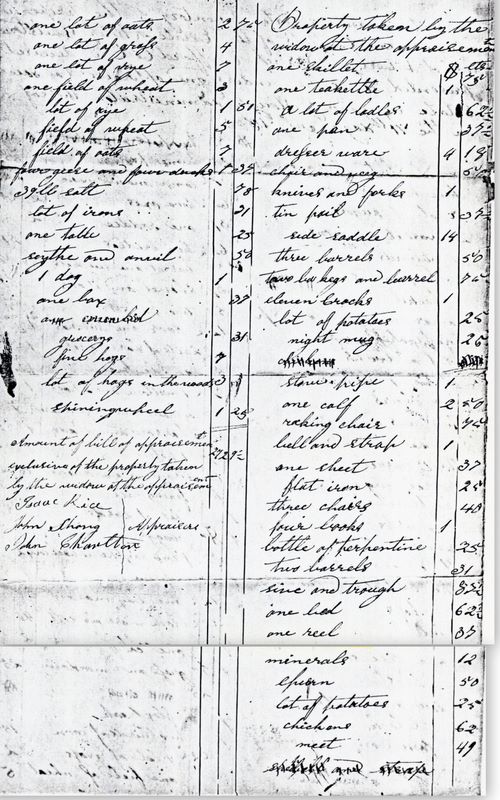 one lot of oats 2 75
one lot of grass 4
one lot of rye 7
one field of wheat 3
lot of rye 1 51
field of wheat 5
field of oats 7
four geese and four ducks 1 37
39 lb salt 78
lot of irons 21
one table 25
sythe and anvil 50
1 dog 1
one box 37
one
grocerys 31
five hogs 7
lot of hogs in the woods 3
spiningwheel 1 25
Amount of bill of appraisement
exclusive of the property taken
by the widow at the appraisement
Isaac Rice
John Strong Appraisers
John Charlton
Property taken by the
widow at the appraisement
one skillet $ cts 75
one teakettle 1
a lot of ladles 62½
one pan 37½
dresser ware 4
chair and
knives and forks 1
tin pail 37½
side saddle 14
three barrels 50
two kegs and barrel 75
eleven crocks 1
lot of potatoes 25
night mug 25
stove pipe 1
one calf 2 50
rocking chair 75
bell and strap 1
one sheet 37
flat iron 25
three chairs 40
four books 1
bottle of terpentine 25
two barrels 31
sive and trough 87½
one bed 62½
one reel 37
minerals 12
50
lot of potatoes 25
chickens 62
meet 49
and